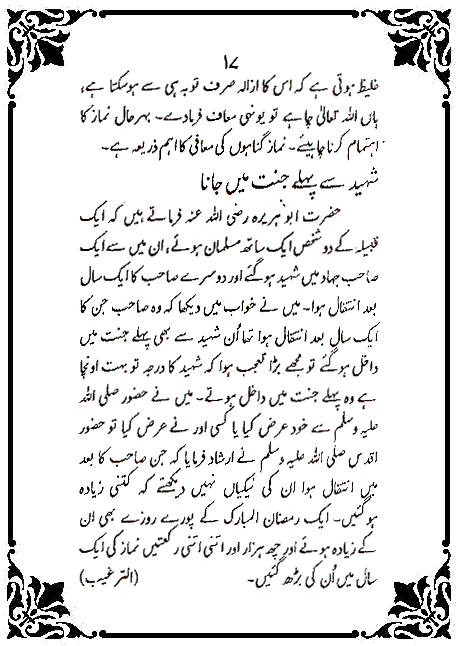 ۱۷
غلیظ ہوتی ہے کہ اس کا ازالہ صرف توبہ ہی سے ہوسکتا ہے،
ہاں اللہ تعالیٰ چاہے تو یونہی معاف فرمادے۔ بہرحال نماز کا
اہتمام کرنا چاہیئے۔ نماز گناہوں کی معافی کا اہم ذریعہ ہے۔
شہید سے پہلے جنت میں جانا
حضرت ابوہریرہ رضی اللہ عنہ فرماتے ہیں کہ ایک
قبیلہ کے دو شخص ایک ساتھ مسلمان ہوئے، ان میں سے ایک
صاحب جہاد میں شہید ہوگئے اور دوسرے صاحب کا ایک سال
بعد انتقال ہوا۔ میں نے خواب میں دیکھا کہ وہ صاحب جن کا
ایک سال بعد انتقال ہوا تھا اُن شہید سے بھی پہلے جنت میں
داخل ہوگئے تو مجھے بڑا تعجب ہوا کہ شہید کا درجہ تو بہت اونچا
ہے وہ پہلے جنت میں داخل ہوتے۔ میں نے حضور صلی اللہ
علیہ وسلم سے خود عرض کیا یا کسی اور نے عرض کیا تو حضور
اقدس صلی اللہ علیہ وسلم نے ارشاد فرمایا کہ جن صاحب کا بعد
میں انتقال ہوا ان کی نیکیاں نہیں دیکھتے کہ کتنی زیادہ
ہوگئیں۔ ایک رمضان المبارک کے پورے روزے بھی ان
کے زیادہ ہوئے اور چھ ہزار اور اتنی اتنی رکعتیں نماز کی ایک
سال میں اُن کی بڑھ گئیں۔ (الترغیب)